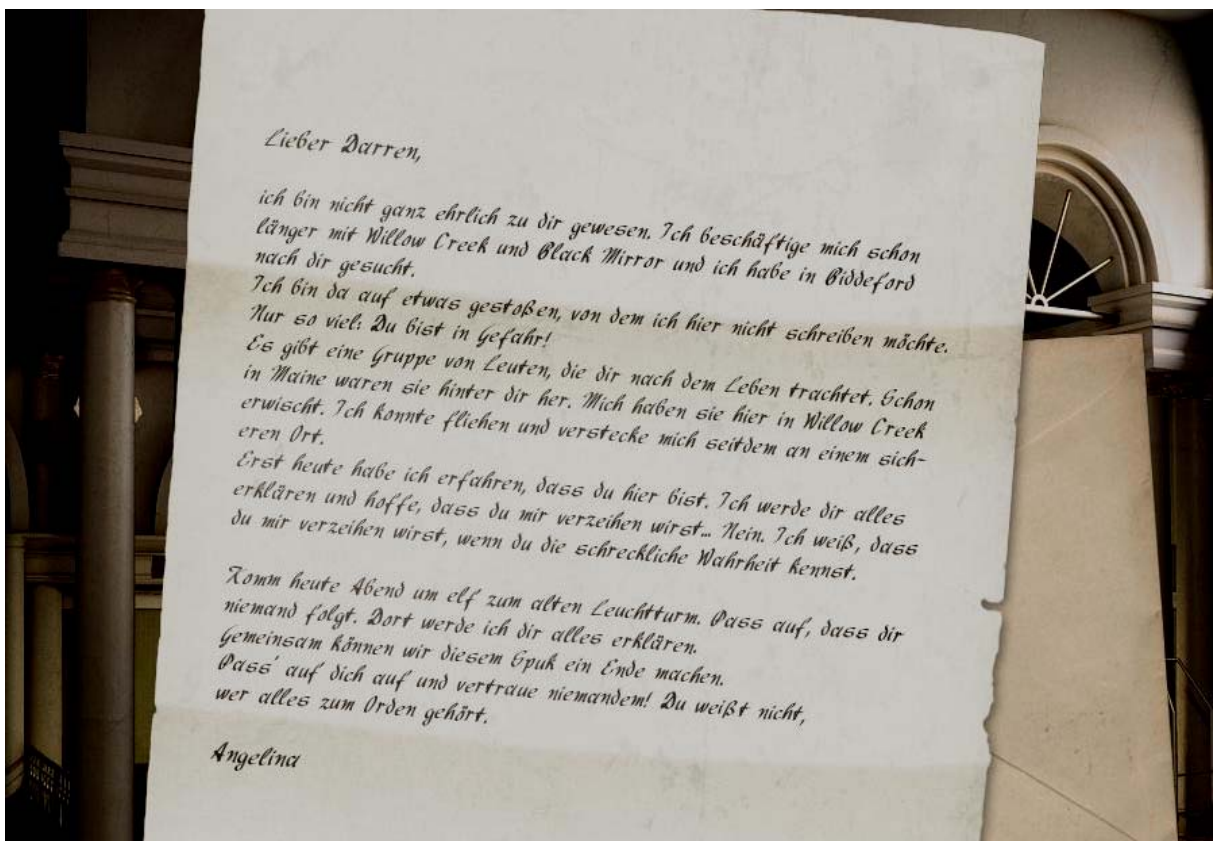 Lieber Darren,
ich bin nicht ganz ehrlich zu dir gewesen. Ich beschäftige mich schon
länger mit Willow Creek und Black Mirror und ich habe in Biddeford
nach dir gesucht.
Ich bin da auf etwas gestoßen, von dem ich hier nicht schreiben möchte.
Nur so viel: Du bist in Gefahr!
Es gibt eine Gruppe von Leuten, die dir nach dem Leben trachtet. Schon
in Maine waren sie hinter dir her. Mich haben sie hier in Willow Creek
erwischt. Ich konnte fliehen und verstecke mich seitdem an einem sich-
eren Ort.
Erst heute habe ich erfahren, dass du hier bist. Ich werde dir alles
erklären und hoffe, dass du mir verzeihen wirst... Nein. Ich weiß, dass
du mir verzeihen wirst, wenn du die schreckliche Wahrheit kennst.
Komm heute Abend um elf zum alten Leuchtturm. Pass auf, dass dir
niemand folgt. Dort werde ich dir alles erklären.
Gemeinsam können wir diesem Spuk ein Ende machen.
Pass' auf dich auf und vertraue niemandem! Du weißt nicht,
wer alles zum Orden gehört.
Angelina